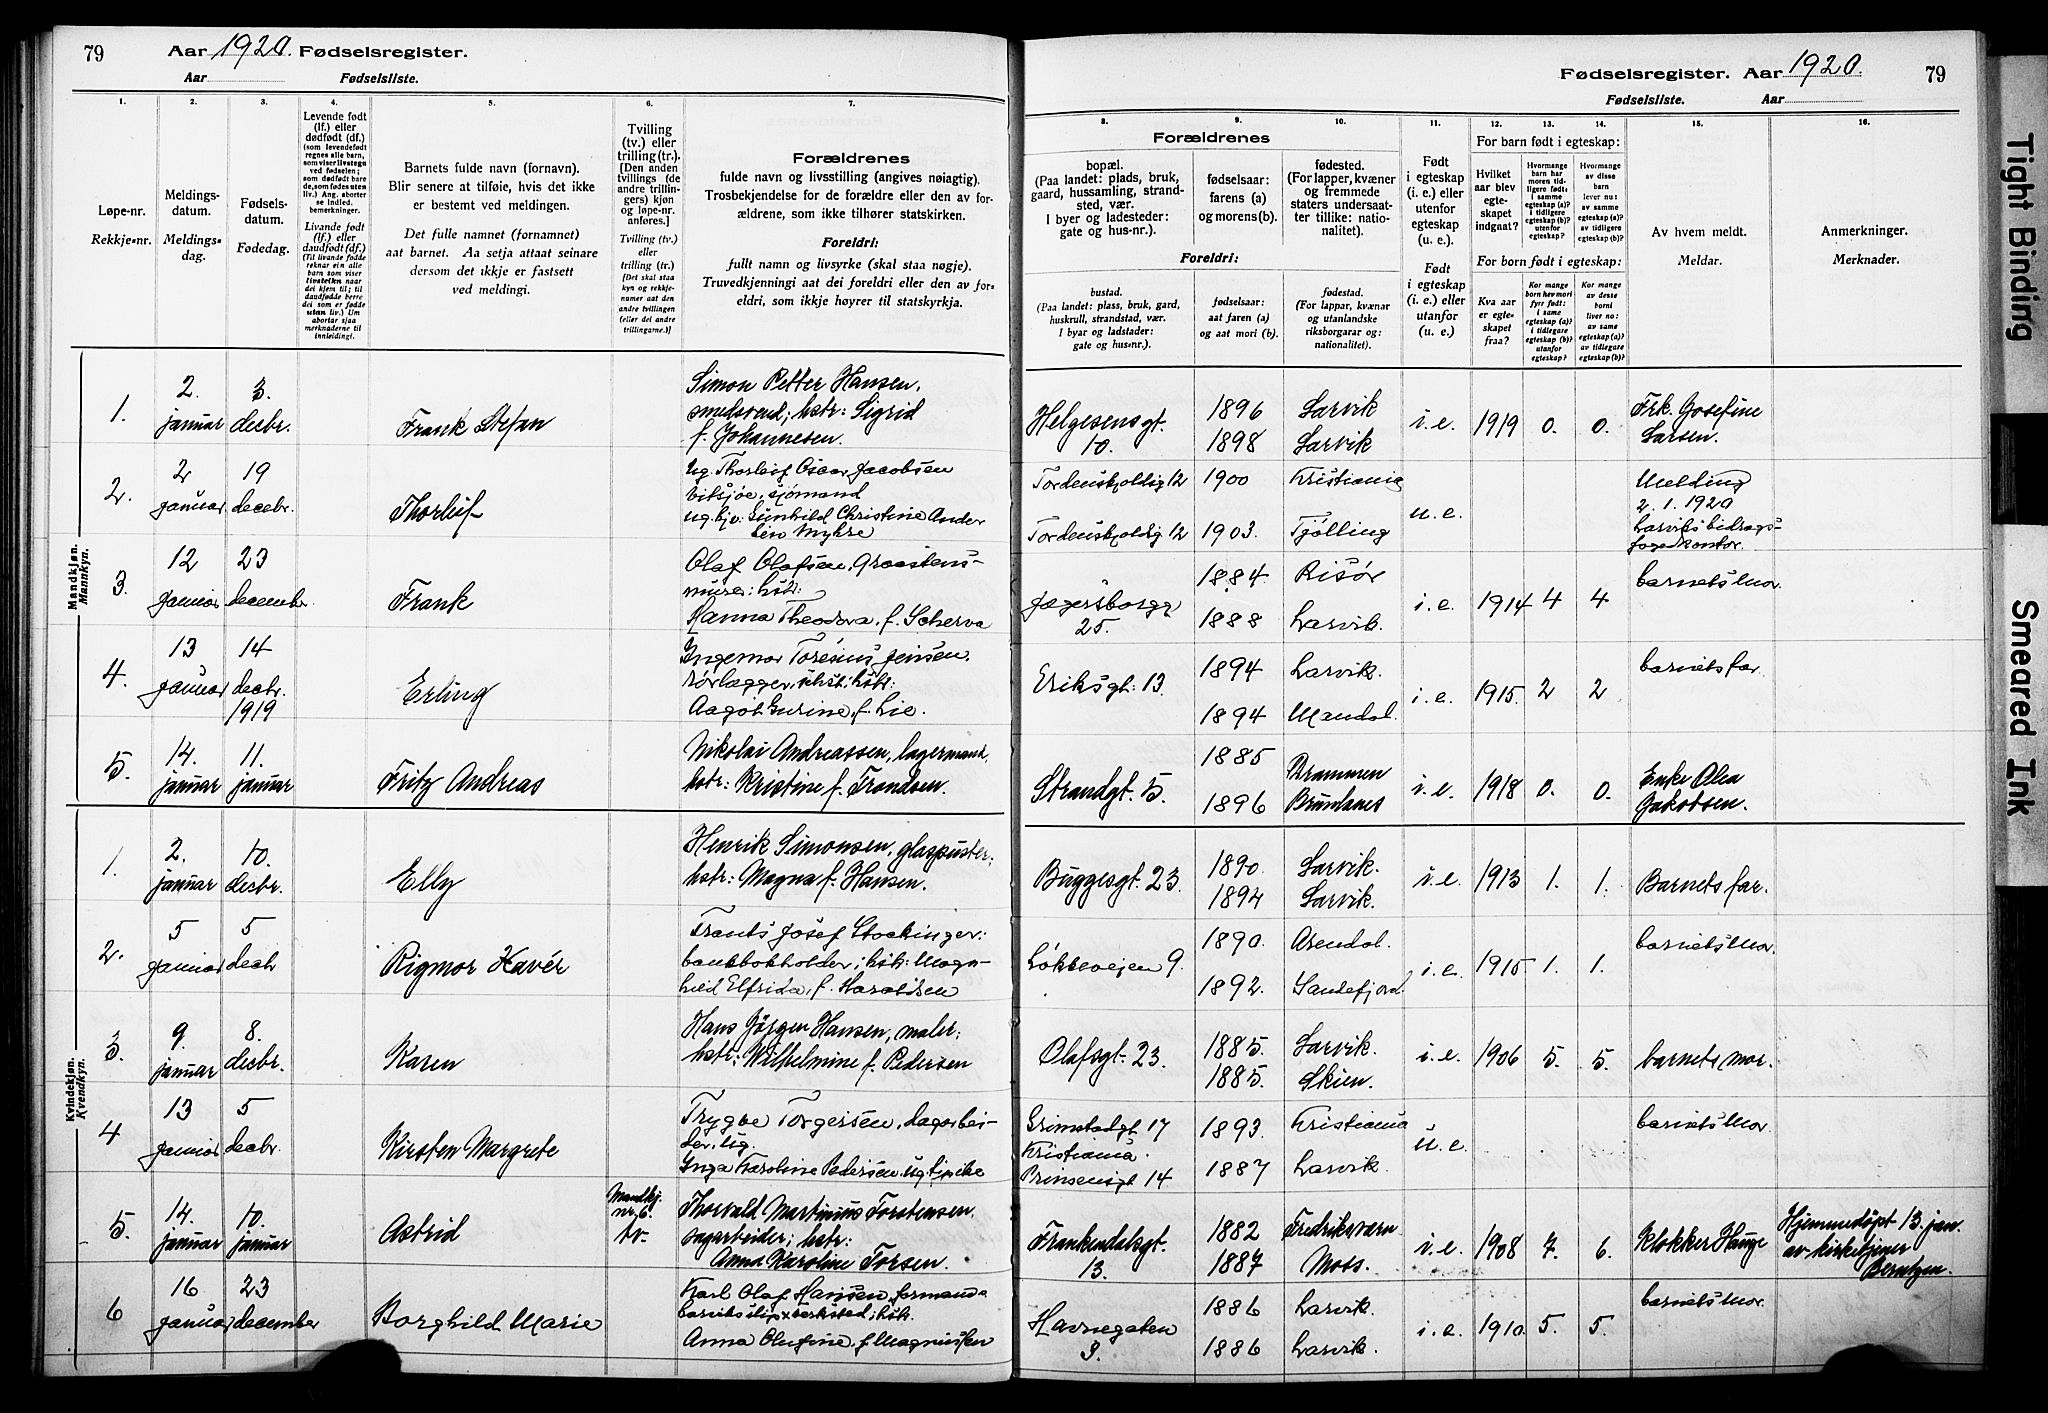 79
Aar 1920. Fødselsregister.
Aar Fødselsliste.
Fødselsregister. Aar 1920.
79
Fødselsliste. Aar
1. 2. 3. 4. 5. 6. 7.
Løpe-nr.
Rekkje-nr.
Meldings-
datum.
Meldings-
dag.
Fødsels-
datum.
Fødedag.
Levende født
(lf.) eller
dødfødt (df.)
(som levendefødt
regnes alle barn,
som viser livstegn
ved fødselen;
som dødfødt bare
de, som fødes uten
liv.) Ang. aborter
se indled.
bemerkninger.
Livande født
(lf.) eller
daudfødt (df.)
(Til livande fødde
reknar ein alle
barn som viser
livsteikn naar
dei kjem til; til
daudfødde berre
dei som er fødde
utan liv.) Um
abortar sjaa
merknaderne til
innleiding.
Barnets fulde navn (fornavn).
Blir senere at tilføie, hvis det ikke
er bestemt ved meldingen.
Det fulle namnet (fornamnet)
aat barnet. Aa setja attaat seinare
dersom det ikkje er fastsett
ved meldingi.
Tvilling
(tv.) eller
trilling (tr.).
[Den anden
tvillings (de
andre trillin-
gers) kjøn og
løpe-nr.
anføres.]
Tvilling (tv.)
eller
trilling (tr.)
[Det skal staa
kyn og rekkje-
numer aat den
andre tvillingen
(eller dei andre
trillingarne.)]
Forældrenes
fulde navn og livsstilling (angives nøiagtig).
Trosbekjendelse for de forældre eller den av for-
ældrene, som ikke tilhører statskirken.
Foreldri:
fullt namn og livsyrke (skal staa nøgje).
Truvedkjenningi aat dei foreldri eller den av for-
eldri, som ikkje høyrer til statskyrkja.
8. 9. 10. 11. 12. 13. 14. 15. 16.
Forældrenes
bopæl.
(Paa landet: plads, bruk,
gaard, hussamling, strand-
sted, vær.
I byer og ladesteder:
gate og hus-nr.).
fødselsaar:
farens (a)
og morens (b).
fødested.
(For lapper, kvæner
og fremmede
staters undersaat-
ter tillike: natio-
nalitet).
Foreldri:
bustad.
(Paa landet: plass, bruk, gard,
huskrull, strandstad, vær.
I byar og ladstader:
gate og hus-nr.).
fødselsaar:
aat faren (a)
og aat mori (b).
fødestad.
(For lappar, kvænar
og utanlandske
riksborgarar og:
nationalitet).
Født
i egteskap
(i. e.) eller
utenfor
egteskap
(u. e.).
Født
i egteskap
(i. e.) eller
utanfor
(u. e.)
For barn født i egteskap:
Hvilket
aar blev
egte-
skapet
indgaat?
Hvormange
barn har
moren tid-
ligere født:
i samme
egteskap (a)?
i tidligere
egteskap (b)?
utenfor
egteskap?
Hvormange
av disse
barn
lever nu:
av samme
egteskap (a)?
av tidligere
egteskap (b)?
For born født i egteskap:
Kva aar
er egte-
skapet
fraa?
Kor mange
born hev mori
fyrr født:
i same
egteskap (a)?
i tidlegare
egteskap (b)?
utanfor
egteskap?
Kor mange
av desse
borni
liver no:
av same
egteskap (a)?
av tidlegare
egteskap (b)?
Av hvem meldt.
Meldar.
Anmerkninger.
Merknader.
Mandkjøn.
Mannkyn.
1. 2. januar 3. desbr. Frank Stefan
Simon Petter Hansen,
smedsvend; hstr: Sigrid
f. Johannesen.
Helgesensgt. 10.
1896 Larvik
1898 Larvik
i.e. 1919 0. 0.
Frk. Josefine
Larsen.
2. 2 januar 19 decebr. Thorleif
Ug. Thorleif Oscar Jacobsen
sjømand
ug. Gunhild Christine Ander
sen Myhre
Tordenskjoldsg 12 1900 Kristiania
Tordenskjoldsg 12 1903. Tjølling
u.e.
Melding
2.1.1920
Larviks bidrags-
fogedkontor.
3. 12 januar 23 decembr Frank
Olaf Olafsen, Graastens-
murer: hstr:
Hanna Theodora, f. Scherva
Jegersborgg 25.
1884. Risør
1888 Larvik.
i.e. 1914 4 4
barnets mor.
4. 13 januar 14 decbr. 1919 Erling
Ingemar Toresius Jensen,
rørlægger, hstr:
Aagot Gurine, f. Lie.
Eriksgt: 13
1894 Larvik.
1894 Mandal.
i.e. 1915. 2 2
barnets far.
5. 14. januar 11. januar Fritz Andreas
Nikolai Andreassen, lagermand,
hstr: Kristine f. Frandsen.
Strandgt. 5.
1885 Drammen
1896 Brunlanes
i.e. 1918 0. 0.
Enke Olea
Jakobsen.
Kvindekjøn.
Kvendkyn.
1. 2. januar 10. desbr. Elly
Henrik Simonsen, glaspuster;
hstr: Magna f. Hansen.
Buggesgt. 23.
1890. Larvik.
1894 Larvik.
i.e. 1913 1. 1.
Barnets far.
2. 5 januar 5 decbr Rigmor Havér
Frants Josef Stockinger:
bankbokholder; hstr: Magn-
hild Elfrida, f. Haraldsen
Løkkeveien 9.
1890. Arendal.
1892. Sandefjord.
i.e. 1915 1. 1.
barnets mor.
3. 9. januar 8. desbr. Karen
Hans Jørgen Hansen, maler;
hstr: Wilhelmine f. Pedersen
Olafsgt. 23.
1885. Larvik.
1885. Skien.
i.e. 1906 5. 5.
barnets mor.
4 13 januar 5 decbr. Kirsten Margrete
Trygve Torgersen, dagarbei-
der, ug.
Inga Karoline Pedersen, ug.
Grimstadgt 17
Kristiania.
Prinsensgt 14
1893. Kristiania
1887 Larvik.
u.e.
barnets mor.
5. 14. januar 10. januar Astrid
Mandkj.
nr. 6.
tv.
Thorvald Martinius Torstensen,
sagarbeider; hstr:
Anna Karoline Torsen.
Frankendalsgt. 13.
1882 Fredriksværn
1887 Moss.
i.e. 1908 7. 6.
Klokker Hauge
Hjemmedøpt 13. jan.
av kirketjener
Berntzen.
6 16 januar 23 december Borghild Marie
Karl Olaf Hansen, formand
Larviks slip & verksted; hstr.
Anna Olufine, f Magnussen
Havnegaten 9.
1886 Larvik.
1886 Larvik.
i.e. 1910. 5. 5.
barnets mor.
Tight Binding
Smeared Ink